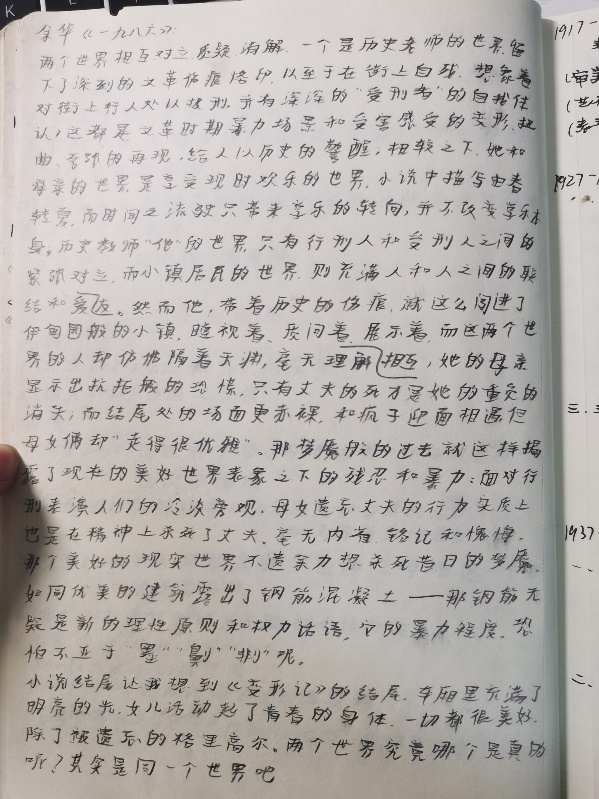 余华《一九八六》：
两个世界相互对立、质疑、消解。一个是历史老师的世界，留
下了深刻的文革伤痕烙印，以至于在街上自残，想象着
对街上行人处以极刑，并有深深的“受刑者”的自我体
认，这都是文革时期暴力场景和受害感受的变形、扭
曲、夸张的再现，给人以历史的警醒；相较之下，她和
母亲的世界是享受现时欢乐的世界，小说中描写由春
转夏，而时间之流放只带来享乐的转向，并不改变享乐本
身。历史教师“他”的世界，只有行刑人和受刑人之间的
紧张对立，而小镇居民的世界，则充满人和人之间的联
结和爱。然而他，带着历史的伤痕，就这么闯进了
伊甸园般的小镇，瞪视着、质问着、展示着，而这两个世
界的人却仿佛隔着天渊，毫无理解相互，她的母亲
显示出抗拒般的恐慌，只有丈夫的死才是她的重负的
消失；而结尾处的场面更赤裸，和疯子迎面相遇但
母女俩却“走得很优雅”。那梦魇般的过去就这样揭
露了现在的美好世界表象之下的残忍和暴力：面对行
刑表演人们的冷淡旁观，母女遗忘丈夫的行为实质上
也是在精神上杀死了丈夫，毫无内省、铭记和愧悔。
那个美好的现实世界不遗余力想杀死昔日的梦魇，
如同优美的建筑露出了钢筋混凝土——那钢筋无
疑是新的理性原则和权力话语，它的暴力程度，恐
怕不亚于“墨”“劓”“剕”呢。
小说结尾让我想到《变形记》的结尾，车厢里充满了
明亮的光，女儿活动起了青春的身体，一切都很美好，
除了被遗忘的格里高尔。两个世界究竟哪个是真的
呢？其实是同一个世界吧
1917-
1927-
三、
1937-
一、
二、